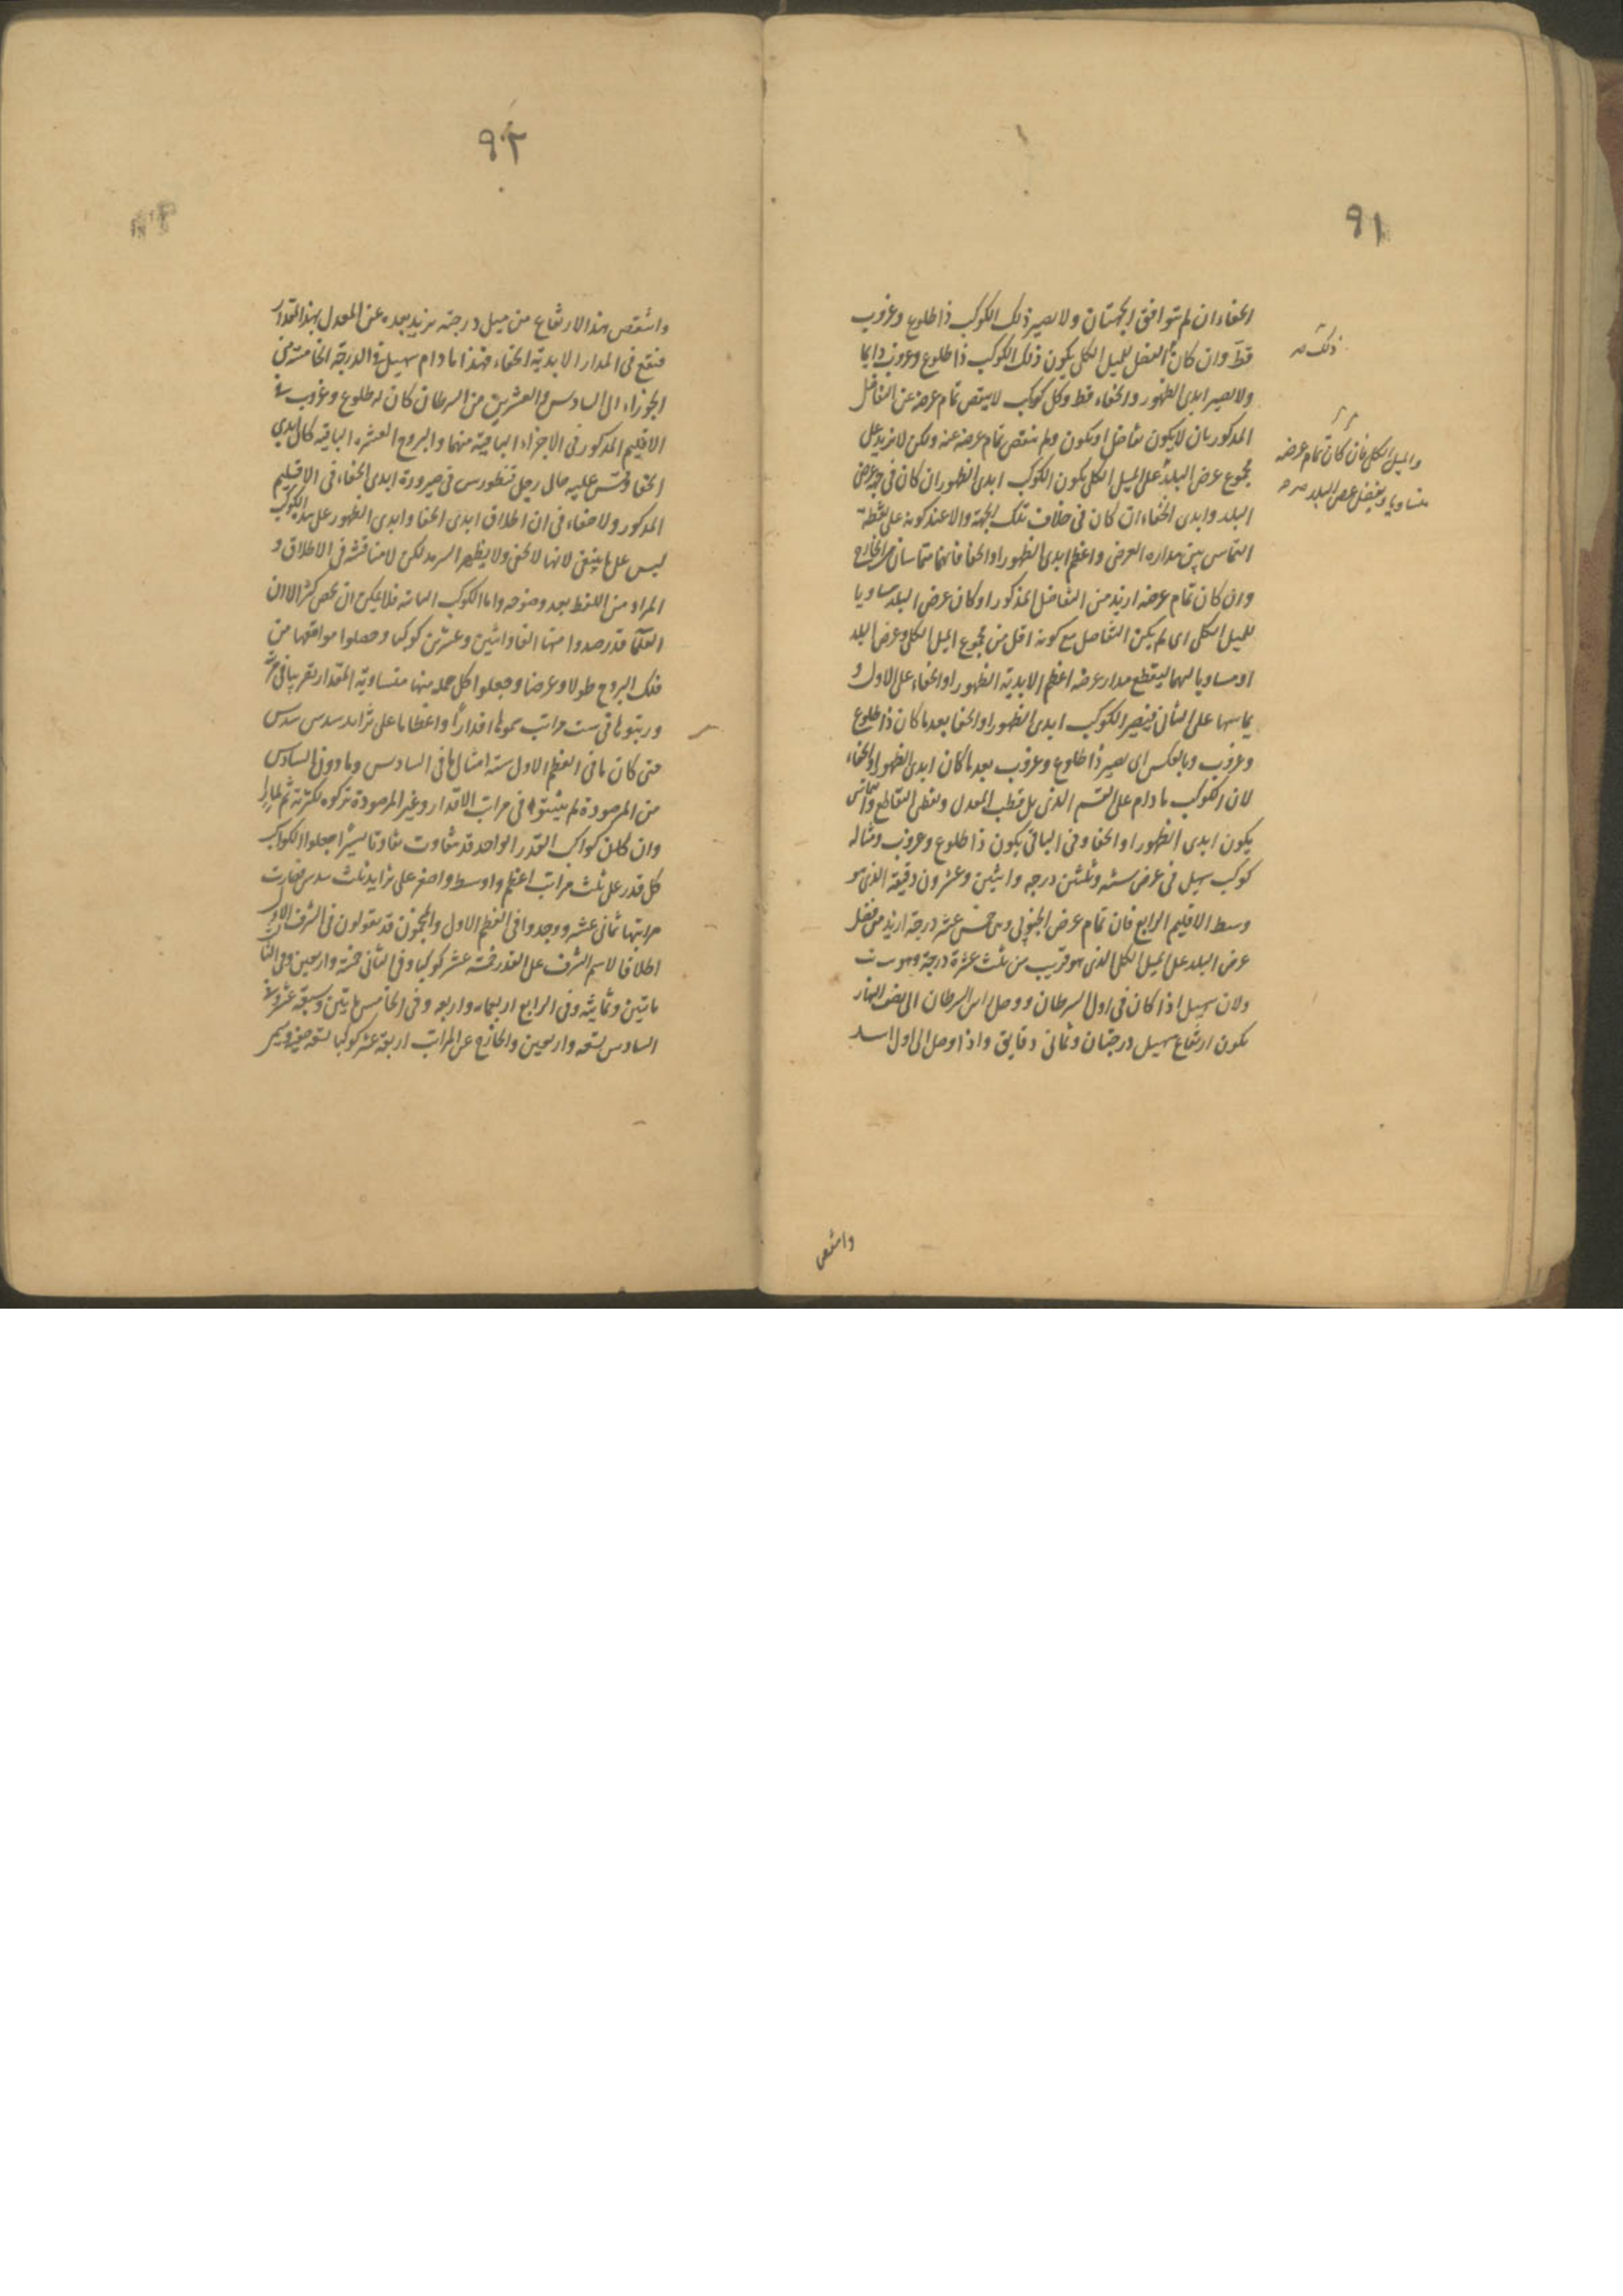 ٩١
الخفاء ان لم تتوافق الجهتان ولا يصير ذلك الكوكب ذا طلوع وغروب
قط وان كان الفضل للميل الكلى يكون ذلك الكوكب ذا طلوع وغروب دايما
ولا يصير ابدى الظهور والخفاء قط وكل كوكب لا ينقص تمام عرضه عن التفاضل
المذكور بان لا يكون تفاضل او يكون ولم ينقص تمام عرضه عنه ولكن لا يزيد على
مجموع عرض البلد على الميل الكلى يكون الكوكب ابدى الظهور ان كان فى جهة عرض
البلد وابدى الخفاء ان كان فى خلاف تلك الجهة والا عند كونه على نقطة
التماس بين مداره العرضى واعظم ابدى الظهور او الخفا فانهما متماسان
وان كان تمام عرضه ازيد من التفاضل المذكور او كان عرض البلد مساويا
للميل الكلى اى لم يكن التفاضل مع كونه اقل من مجموع الميل الكلى وعرض البلد
او مساويا لهما ليقطع مدار عرضه اعظم الابدية الظهور او الخفاء على الاول و
يماسها على الثانى فيصير الكوكب ابدى الظهور او الخفا بعد ما كان ذا طلوع
وغروب وبالعكس اى يصير ذا طلوع وغروب بعد ما كان ابدى الظهور او الخفاء
لان الكوكب ما دام على القسم الذى يلى قطب المعدل ونقطى التقاطع والتماس
يكون ابدى الظهور او الخفا وفى الباقى يكون ذا طلوع وغروب ومثاله
كوكب سهيل فى عرض سته وثلثين درجه واثنين وعشرون دقيقه الذى هو
وسط الاقليم الرابع فان تمام عرض الجنوبى وهى خمس عشر درجة ازيد من فضل
عرض البلد على الميل الكلى الذى هو قريب من ثلث عشرة درجة وهو
ولان سهيل اذا كان فى اول السرطان ووصل راس السرطان الى نصف النهار
يكون ارتفاع سهيل درجتان وثمانى دقايق واذا وصل الى اول اسد
ذلك صح
والميل الكلى فان كان تمام عرضه
متساويا وبفضل عرض البلد صح
وانتقص
٩٢
وانتقص هذا الارتفاع من ميل درجته يزيد بعده عن المعدل بهذا المقدار
فيقع فى المدار الابدية الخفاء فهذا ما دام سهيل فى الدرجة الخامسة من
الجوزاء الى السادس والعشرين من السرطان كان له طلوع وغروب فى
الاقليم المذكور فى الاجزاء الباقية منهما والبروج العشره الباقيه كان ابدى
الخفا وقس عليه حال رجل قنطورس فى صيرورة ابدى الخفاء فى الاقليم
المذكور ولا خفاء فى ان اطلاق ابدى الخفا وابدى الظهور على هذه الكوكب
ليس على ما ينبغى لانها لا تخفى ولا يظهر السرمد لكن لا مناقشة فى الاطلاق و
المراد من اللفظ بعد وضوحه واما الكوكب الثابته فلا يمكن ان يحصى كثر الا ان
القدما قد رصدوا منها الفا واثنين وعشرين كوكبا وحصلوا مواقعها من
فلك البروج طولا وعرضا وجعلوا كل جمله منها متساوية المقدار تقريبا فى مرتبة
ورتبوها فى ست مراتب سموها اقدارا واعظاما على تزايد سدس سدس
حتى كان ما فى العظم الاول ستة امثال ما فى السادس وما دون السادس
من المرصودة لم يثبتوه فى مراتب الاقدار وغير المرصودة تركوه لكثرته ثم لما
وان كان كواكب القدر الواحد قد تتفاوت تفاوتا يسيرا جعلوا الكواكب
كل قدر على ثلث مراتب اعظم واوسط واصغر على تزايد ثلث سدس فصارت
مراتبها ثمانى عشر ووجدوا فى العظم الاول والمنجمون قد يقولون فى الشرف الاول
اطلاقا لاسم الشرف على القدر خمسة عشر كوكبا وفى الثانى خمسة واربعين وفى الثالث
مايتين وثمانية وفى الرابع اربعمايه واربعه وفى الخامس مايتين وسبعة عشر وفى
السادس تسعه واربعين والخارج عن المراتب اربعة عشر كوكبا تسعه خفيه ويسمى